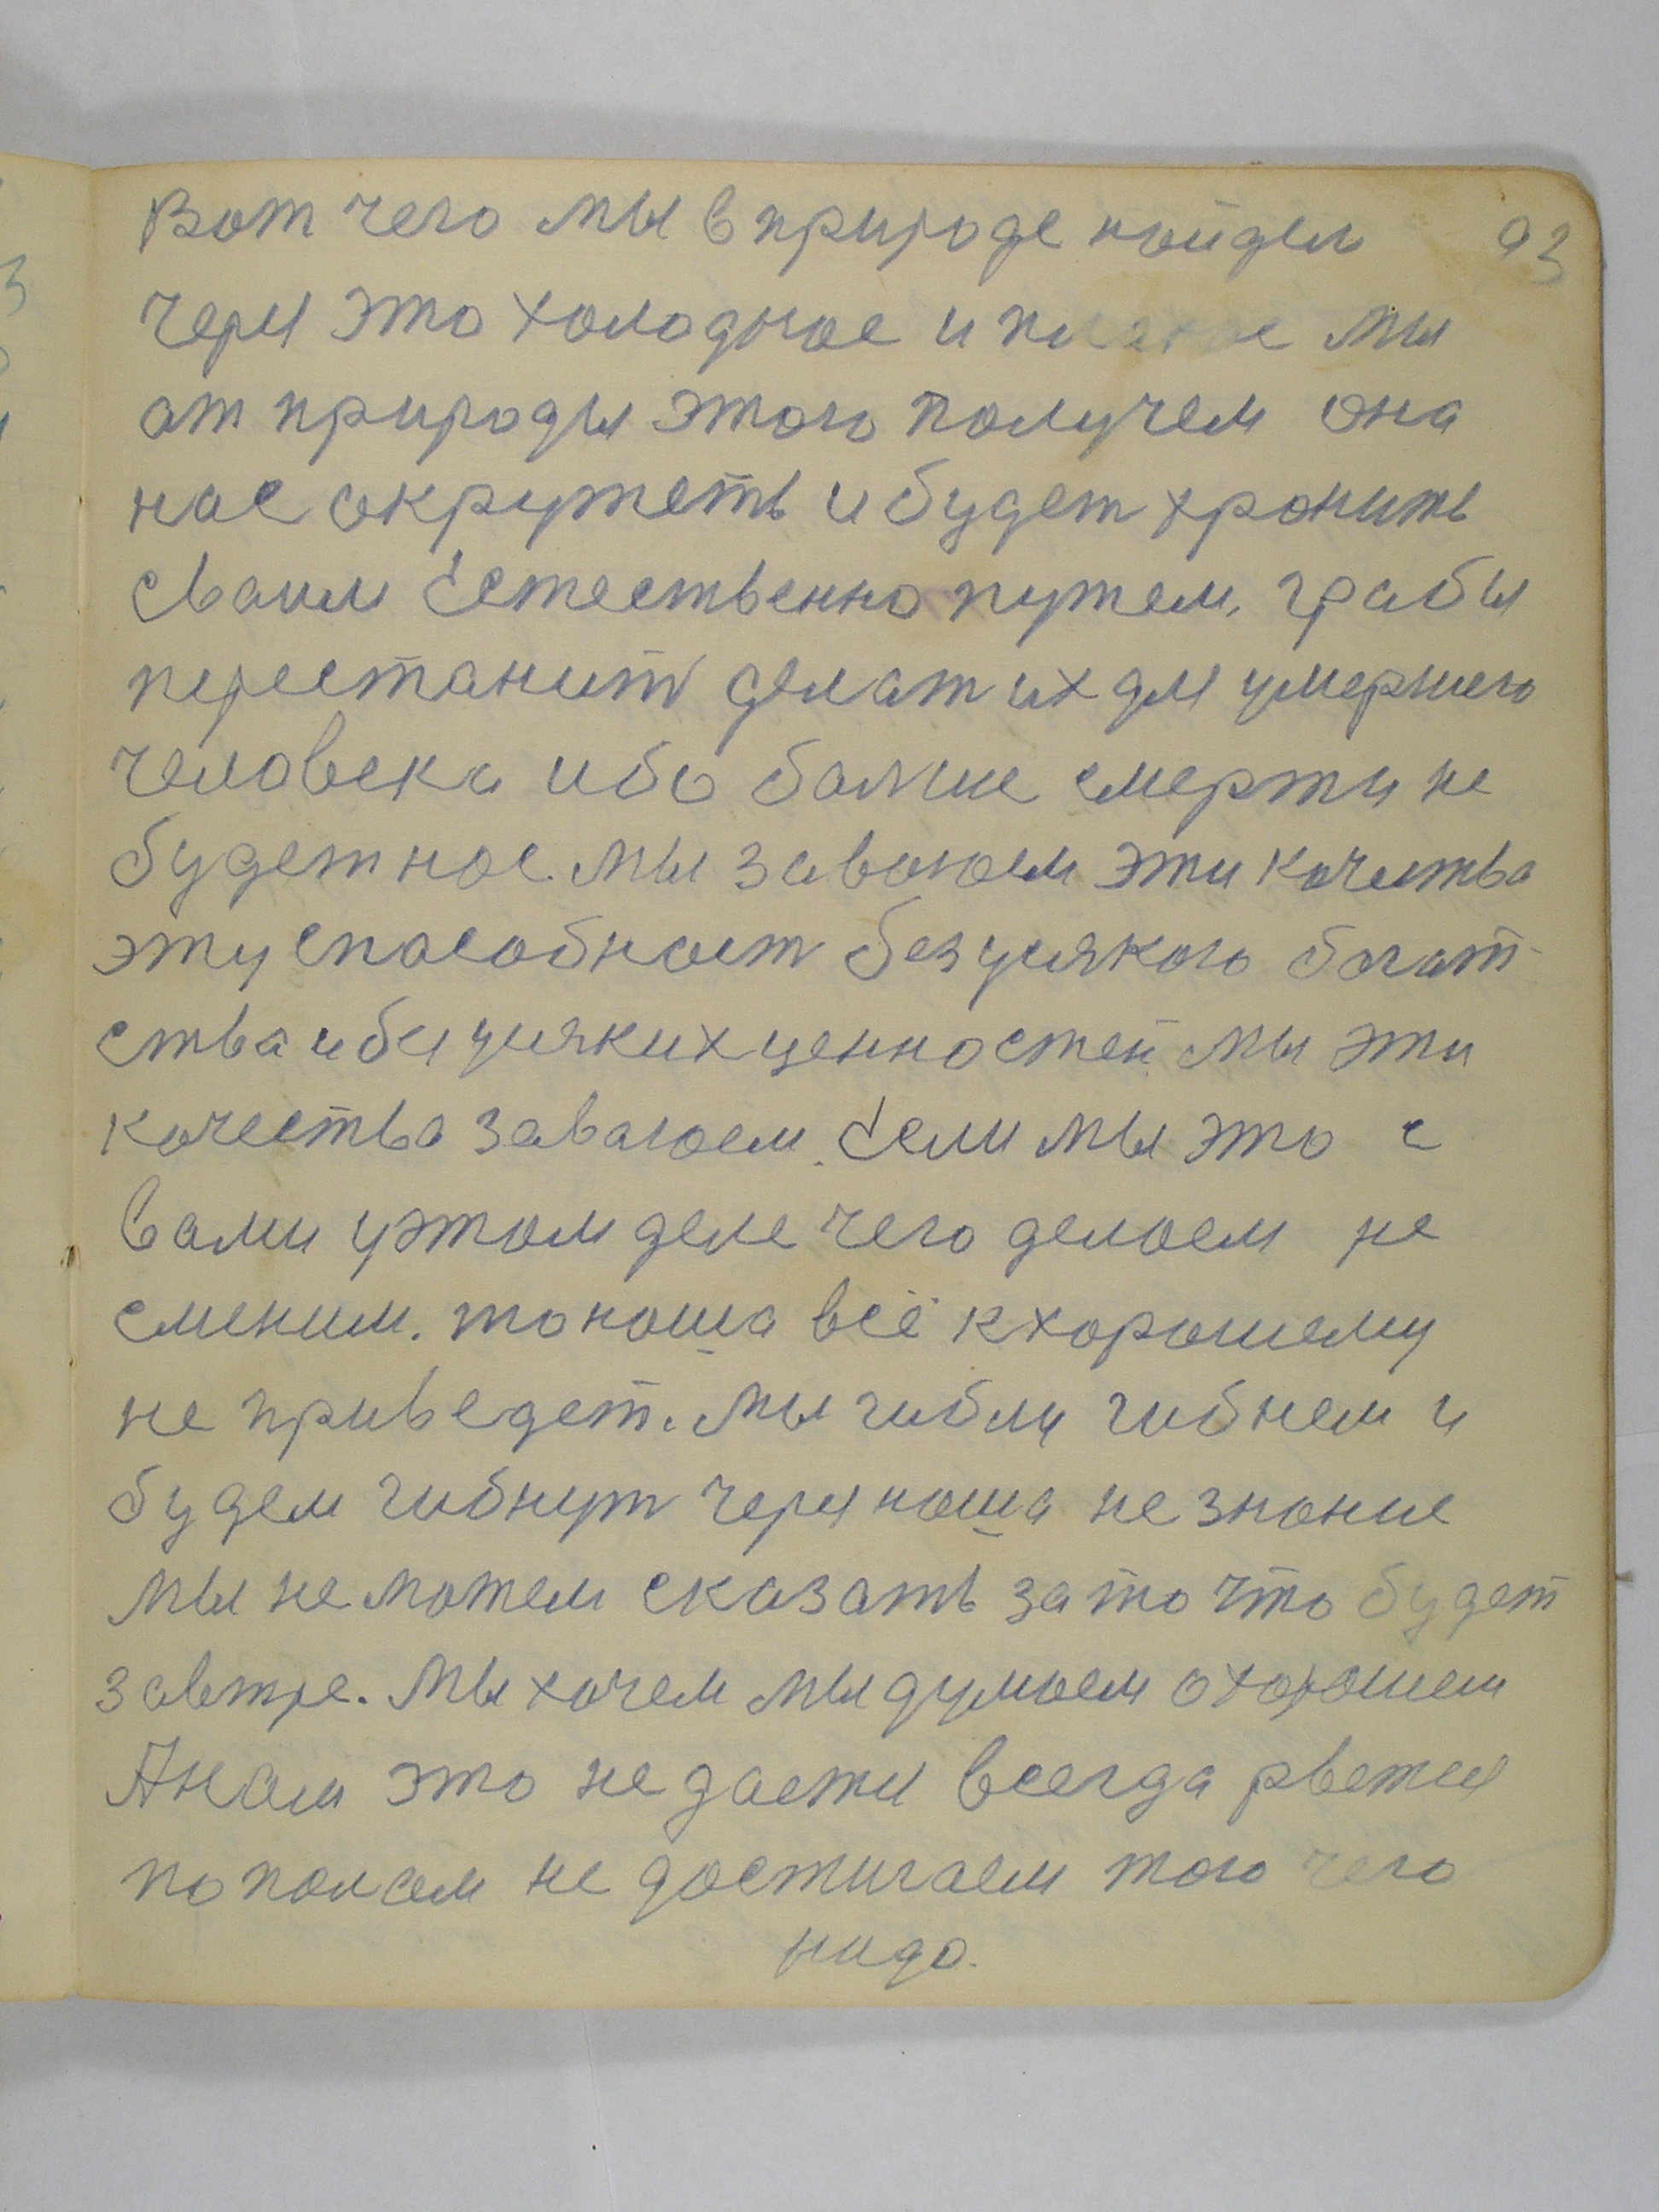 Вот чего мы в природе найдем 93
через это холодное и плохое мы
от природы этого получем она
нас окружеть и будет хронить
сваим Естественно путем, грабы
перестанить делат их для умершего
человека ибо балше смерти не
будет нас. Мы завоюем эти качества
эту спасобност без усякого богат-
ства и без усяких ценностей мы эти
качества заваюем. Если мы это с
вами у этом деле чего делаем не
сменим. то наша всё к хорошему
не приведет. Мы гибли гибнем и
будем гибнут через наша не знание
мы не можем сказать за то что будет
завтре. Мы хочем мы думаем о хорошем
А нам это не даетя всегда рветься
по полам не достигаем того чего
надо.